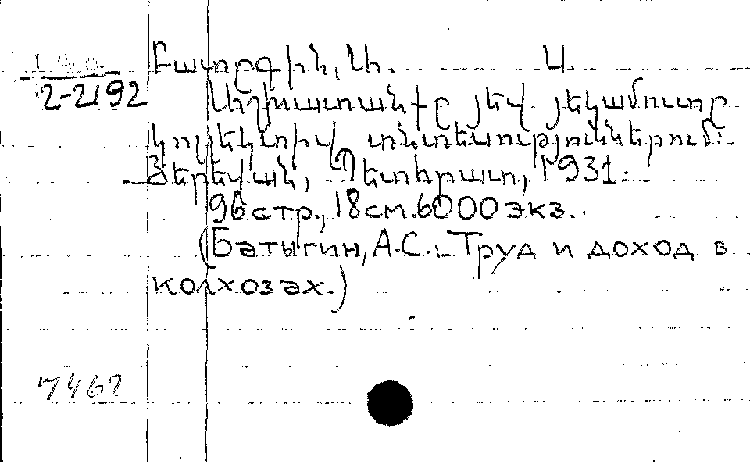 Բատըգին, Ա. Ս.
2-2192
Աշխատանքը յեվ յեկամուտը
կոլեկտիվ տնտեսություններում:
Յերեվան, Պետհրատ, 1931.
96 стр., 18 см. 6000 экз.
(Батыгин, А.С. Труд и доход в
колхозах.)
7467